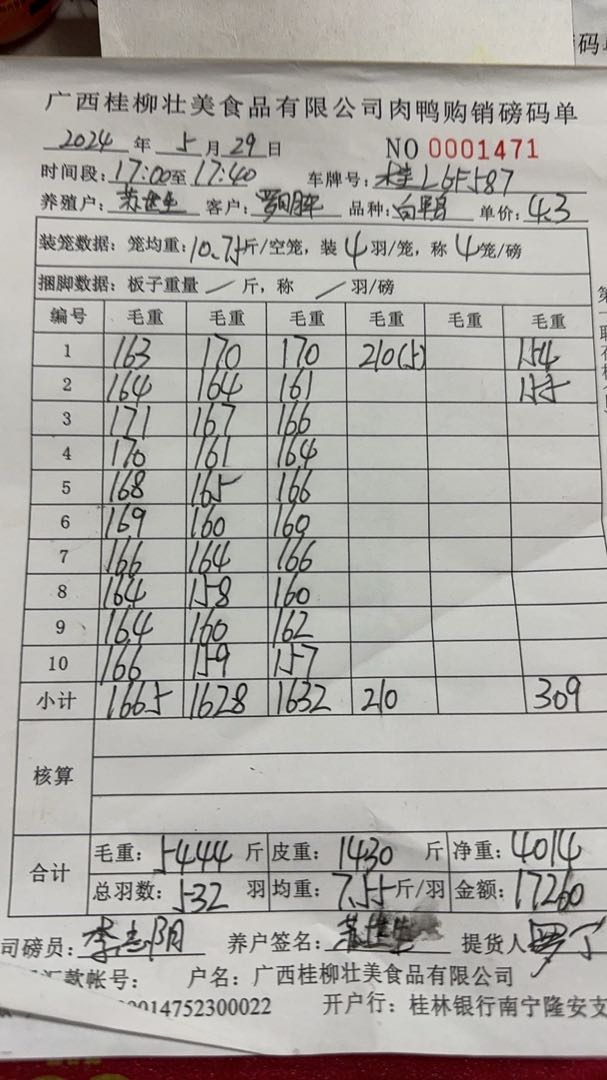 码单
广西桂柳壮美食品有限公司肉鸭购销磅码单
2024 年 5 月 29 日 NO 0001471
时间段:17:00至17:40 车牌号:桂L6F587
养殖户:苏世生 客户: 品种:白鸭 单价:4.3
装笼数据:笼均重:10.75斤/空笼,装4羽/笼,称4笼/磅
捆脚数据:板子重量 / 斤,称 / 羽/磅
编号 毛重 毛重 毛重 毛重 毛重 毛重
1 163 170 170 210(5) 154
2 164 164 161 155
3 171 167 166
4 170 161 164
5 168 165 166
6 169 160 160
7 166 164 166
8 164 158 160
9 164 160 162
10 166 159 157
小计 1665 1628 1632 210 309
核算
合计 毛重:5444 斤 皮重:1430 斤 净重:4014
总羽数:532 羽 均重:7.55斤/羽 金额:17260
司磅员:李志阴 养户签名:苏世生 提货人
汇款帐号: 户名:广西桂柳壮美食品有限公司
0014752300022 开户行:桂林银行南宁隆安支